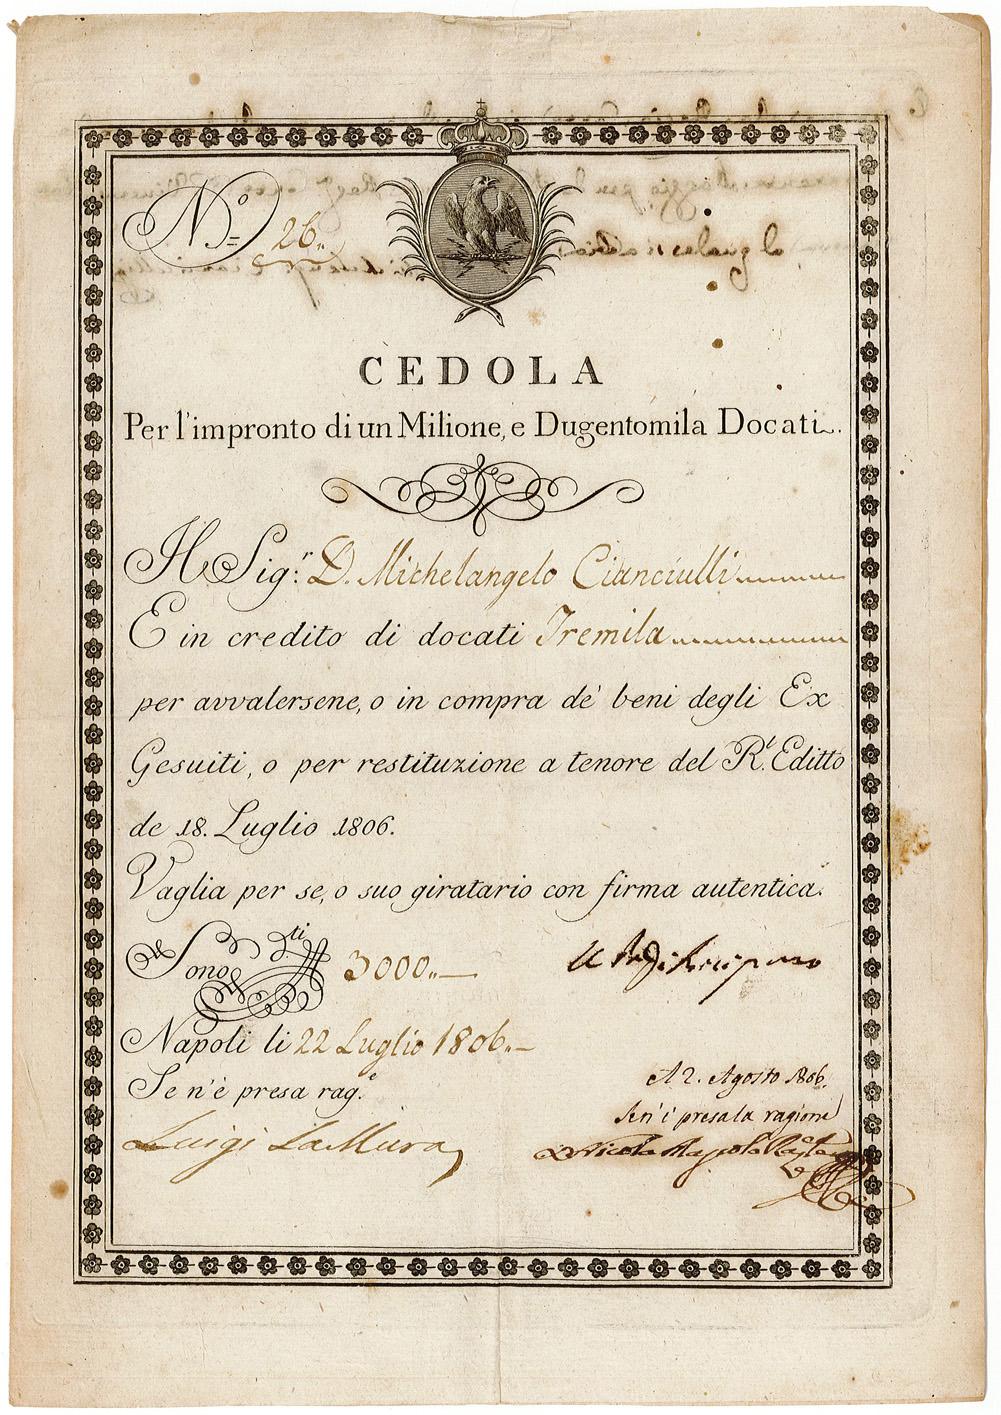 N.º 26.
CEDOLA
Per l'impronto di un Milione, e Dugentomila Docati.
Il Sig.r D. Michelangelo Cianciulli
E in credito di docati Tremila
per avvalersene, o in compra de' beni degli Ex
Gesuiti, o per restituzione a tenore del R.l Editto
de 18. Luglio 1806.
Vaglia per se, o suo giratario con firma autentica.
Sono d.ti 3000..
Napoli li 22 Luglio 1806..
Se n'è presa rag.e
A 2. Agosto 1806.
Se n'è presa la ragione
Luigi La Mura
D. Nicola